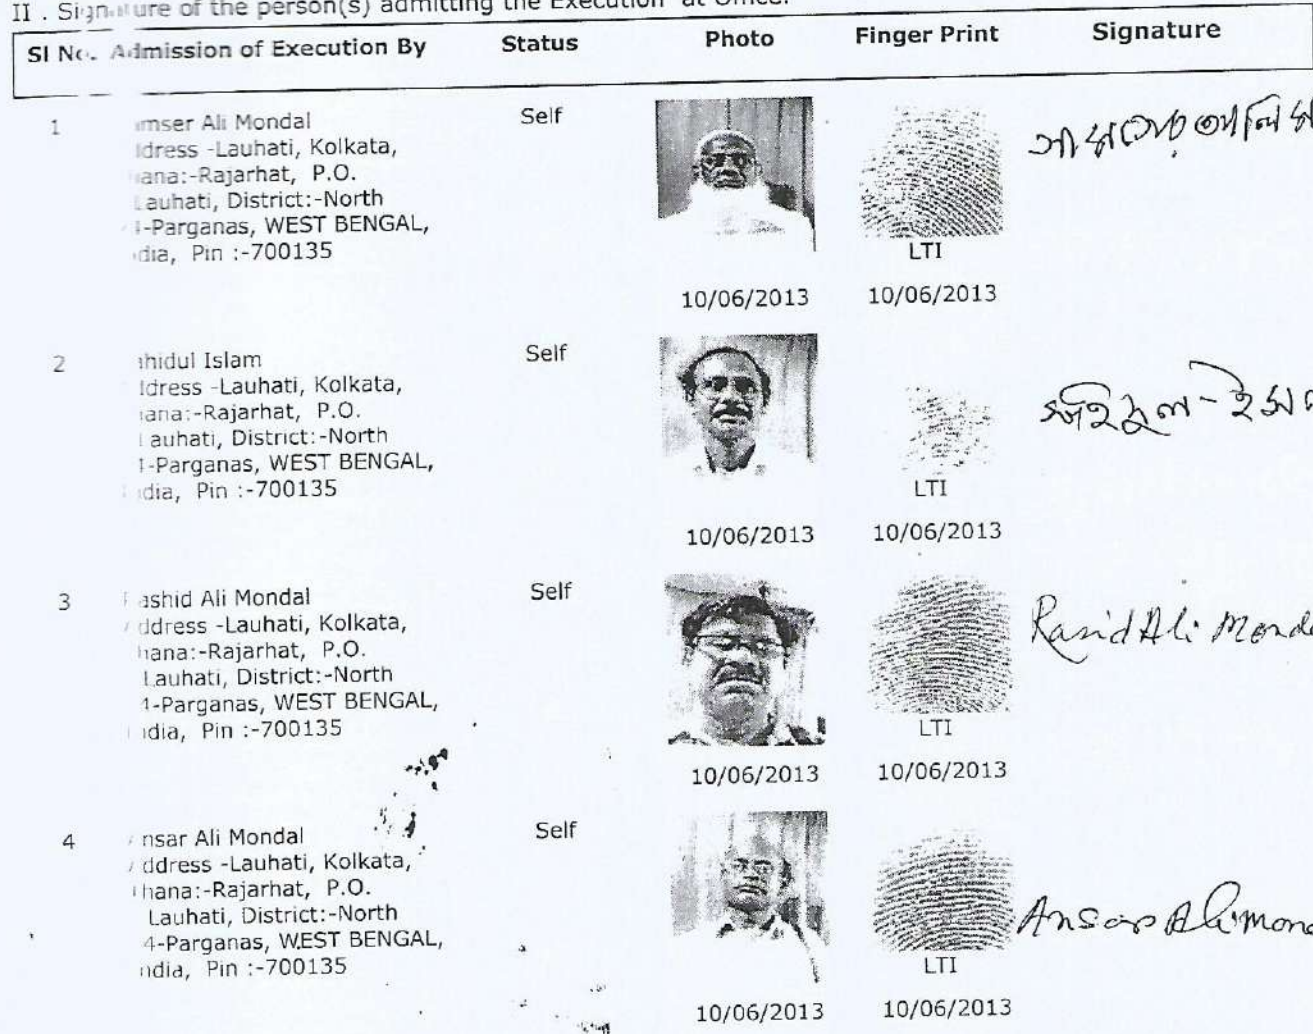 II . Signature of the person(s) admitting the Execution at Office.
Sl No. Admission of Execution By Status Photo Finger Print Signature
1 mser Ali Mondal Self
dress -Lauhati, Kolkata,
ana:-Rajarhat, P.O.
auhati, District:-North
-Parganas, WEST BENGAL,
dia, Pin :-700135
LTI
10/06/2013 10/06/2013
সামসের আলি ম
2 hidul Islam Self
dress -Lauhati, Kolkata,
ana:-Rajarhat, P.O.
auhati, District:-North
-Parganas, WEST BENGAL,
dia, Pin :-700135
LTI
10/06/2013 10/06/2013
3 ashid Ali Mondal Self
ddress -Lauhati, Kolkata,
hana:-Rajarhat, P.O.
Lauhati, District:-North
-Parganas, WEST BENGAL,
dia, Pin :-700135
LTI
10/06/2013 10/06/2013
Rasid Ali Monda
4 nsar Ali Mondal Self
ddress -Lauhati, Kolkata,
hana:-Rajarhat, P.O.
Lauhati, District:-North
4-Parganas, WEST BENGAL,
ndia, Pin :-700135
LTI
10/06/2013 10/06/2013
Ansar Ali mond